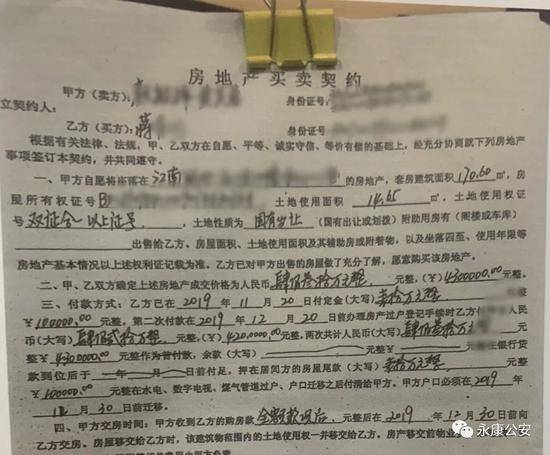 房地产买卖契约
甲方（卖方）： 身份证号：
立契约人：
乙方（买方）：蒋 身份证号：
根据有关法律、法规，甲、乙双方在自愿、平等、诚实守信、等价有偿的基础上，经充分协商就下列房地产
事项签订本契约，并共同遵守。
一、甲方自愿将座落在 江南 的房地产，套房建筑面积 170.60 ㎡，房
屋所有权证号 土地使用面积 14.65 ㎡，土地使用权证
号 双证合一以上证号 ，土地性质为 国有出让 （国有出让或划拨）附助用房有（阁楼或车库）
出售给乙方、房屋面积、土地使用面积及其辅助房或附着物，以及坐落四至、使用年限等
房地产基本情况以上述权利证记载为准。乙方已对甲方出售的房屋做了充分了解，愿意购买该房地产。
二、甲、乙双方确定上述房地产成交价格为人民币 肆佰叁拾万元整 元整，（￥）4300000.00 元整。
三、付款方式：乙方已在 2019 年 11 月 20 日付定金（大写）
￥100000.00 元整，第二次付款在 2019 年 12 月 20 日前办理房产过户登记手续时乙方付 人民
币（大写）肆佰贰拾万元整 元整，（￥）4200000.00 元整，两次共计人民币（大写）肆佰叁拾万元
整￥4300000.00 元整作为首付款，余款（大写） 元整 银行贷
款到位后于 年 月 日前付足，押在居间方的房屋尾款（大写）
￥100000.00 元整在水电、数字电视、煤气管道过户、户口迁移之后付清给甲方。甲方户口必须在 2019 年
12 月 30 日前迁移。
四、甲方交房时间：甲方收到乙方的购房款 全额款项后 元整后在 2019 年 12 月 30 日前向
乙方交房。房屋移交给乙方时，该建筑物范围内的土地使用权一并移交给乙方、房产移交前物业
永康公安